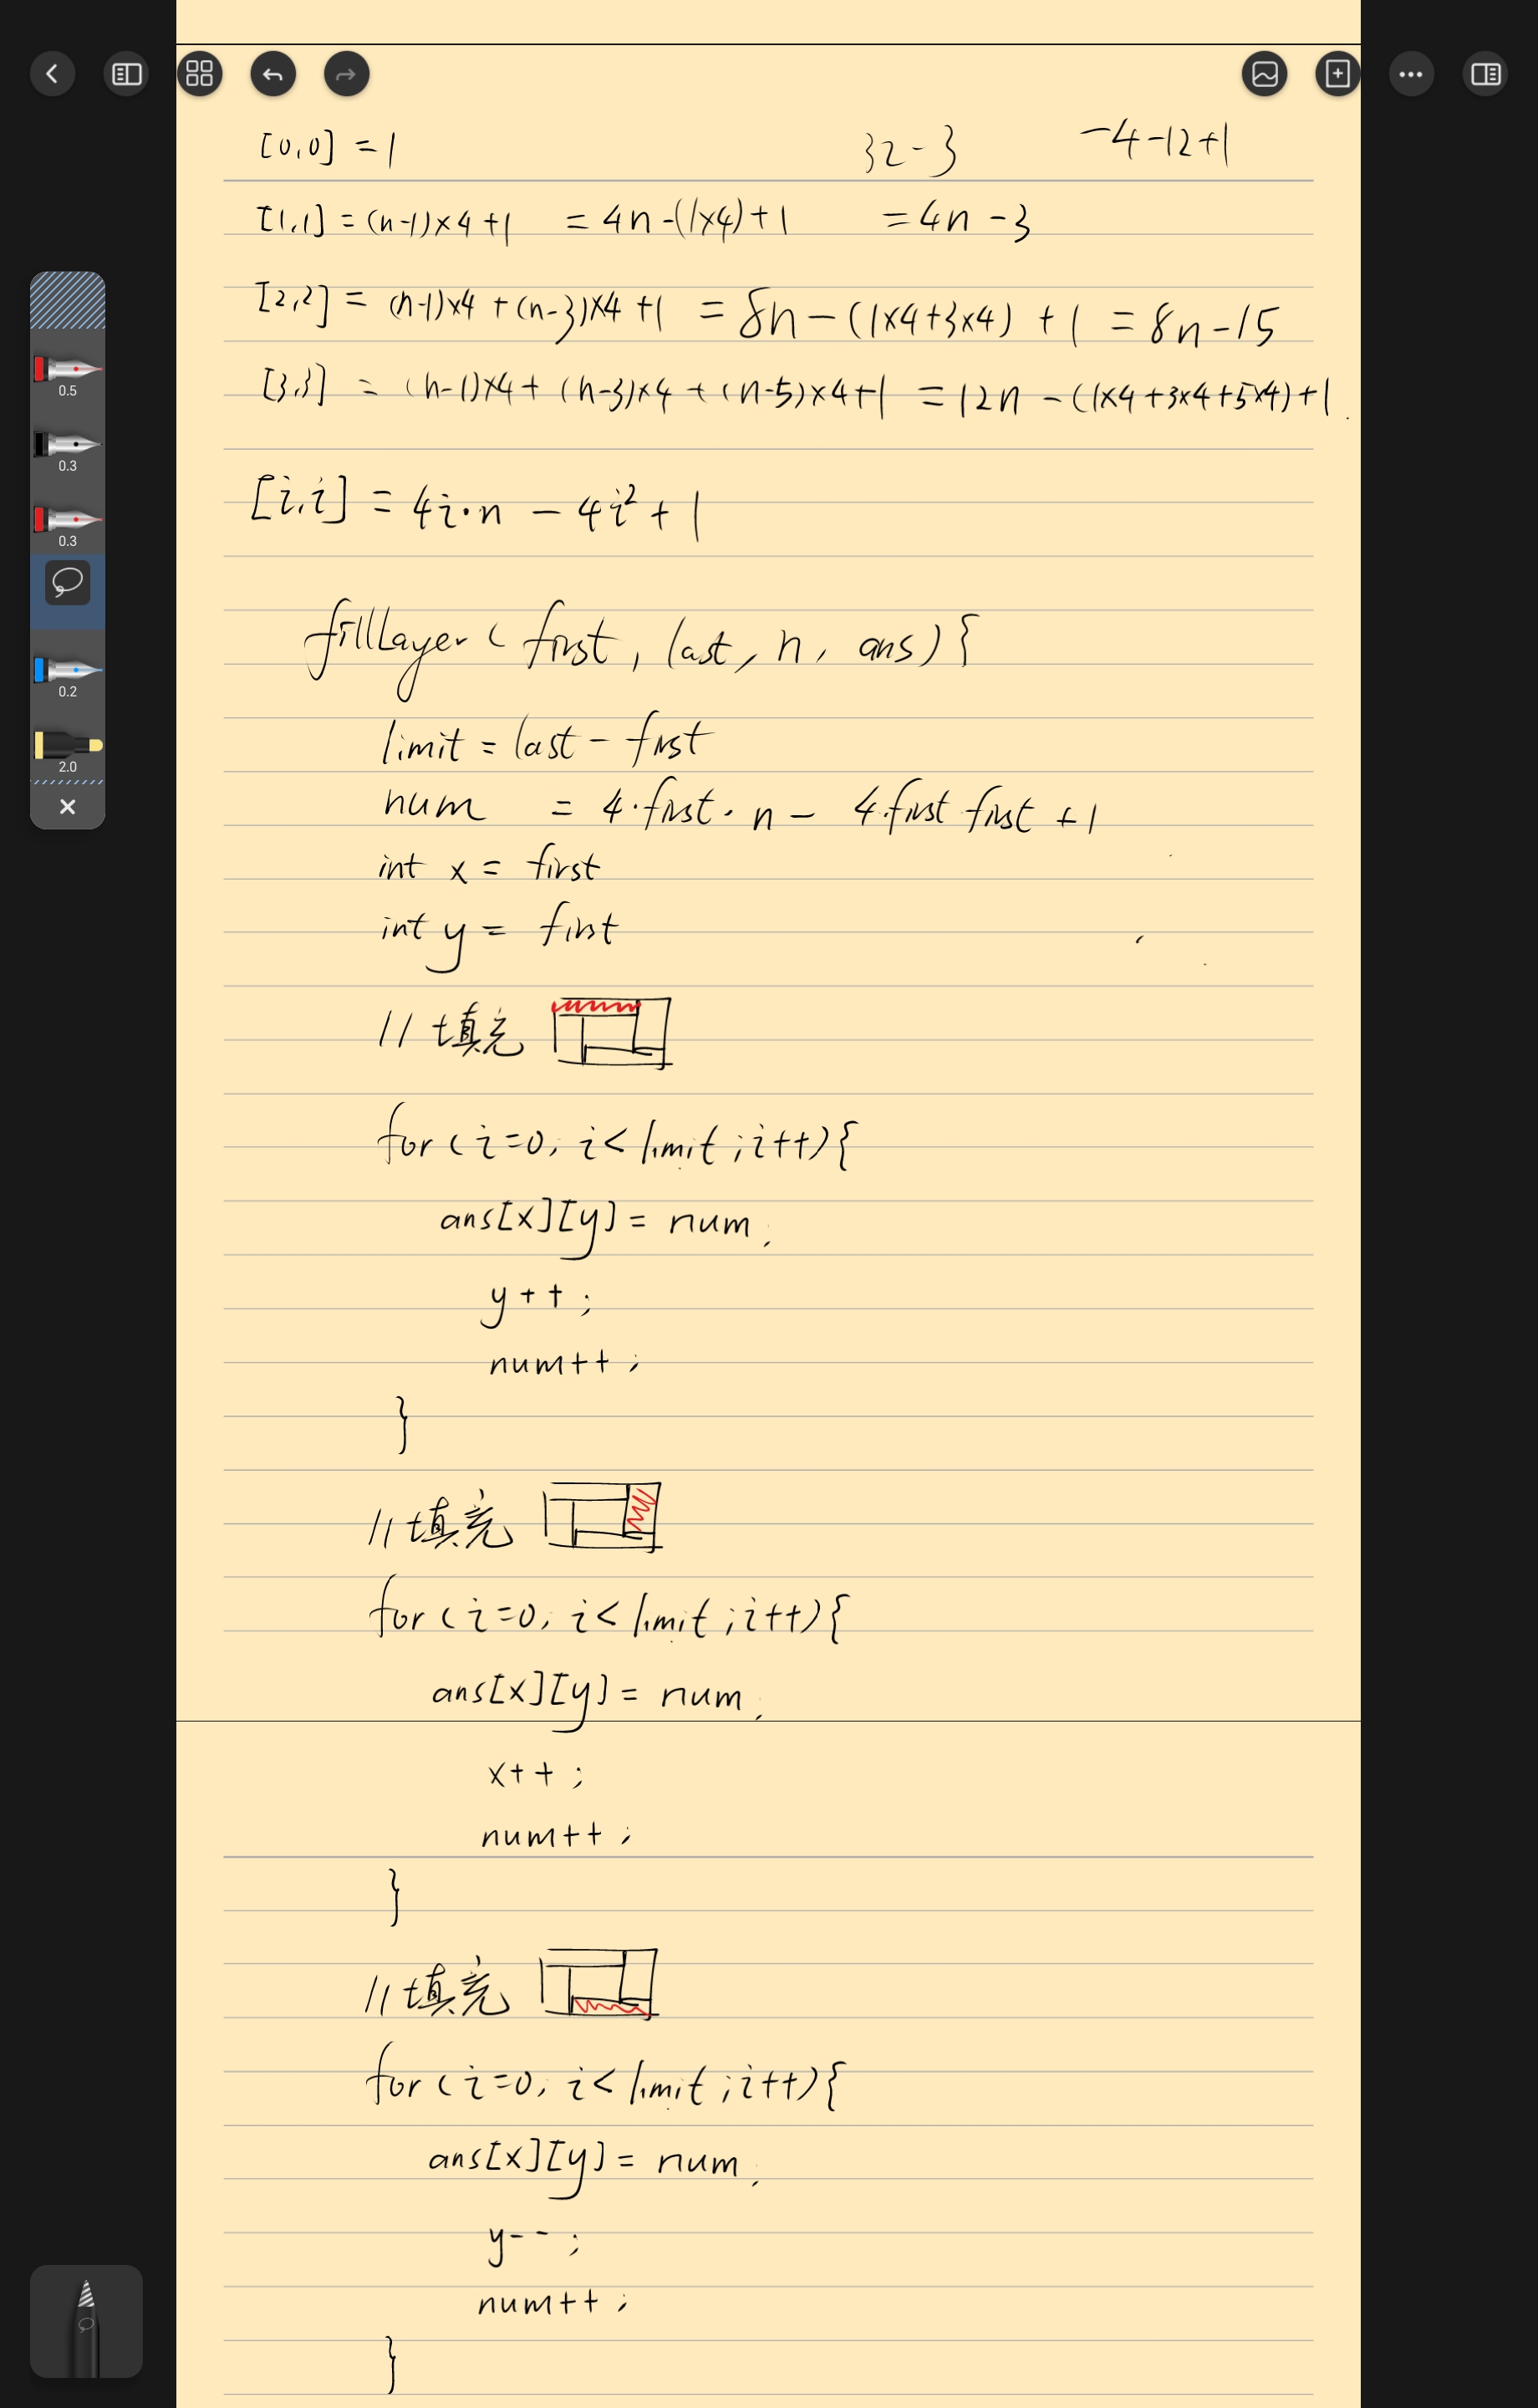 [0,0] = 1 32-3 -4-12+1
[1,1] = (n-1)×4+1 = 4n-(1×4)+1 = 4n-3
[2,2] = (n-1)×4+(n-3)×4+1 = 8n-(1×4+3×4)+1 = 8n-15
[3,3] = (n-1)×4+(n-3)×4+(n-5)×4+1 = 12n-(1×4+3×4+5×4)+1
[i,i] = 4i·n - 4i²+1
0.5
0.3
0.3
0.2
2.0
fillLayer(first, last, n, ans){
limit = last - first
num = 4·first·n - 4·first first +1
int x = first
int y = first
// 填充
for(i=0, i<limit;i++){
ans[x][y] = num;
y++;
num++;
}
// 填充
for(i=0, i<limit;i++){
ans[x][y] = num;
x++;
num++;
}
// 填充
for(i=0, i<limit;i++){
ans[x][y] = num;
y--;
num++;
}